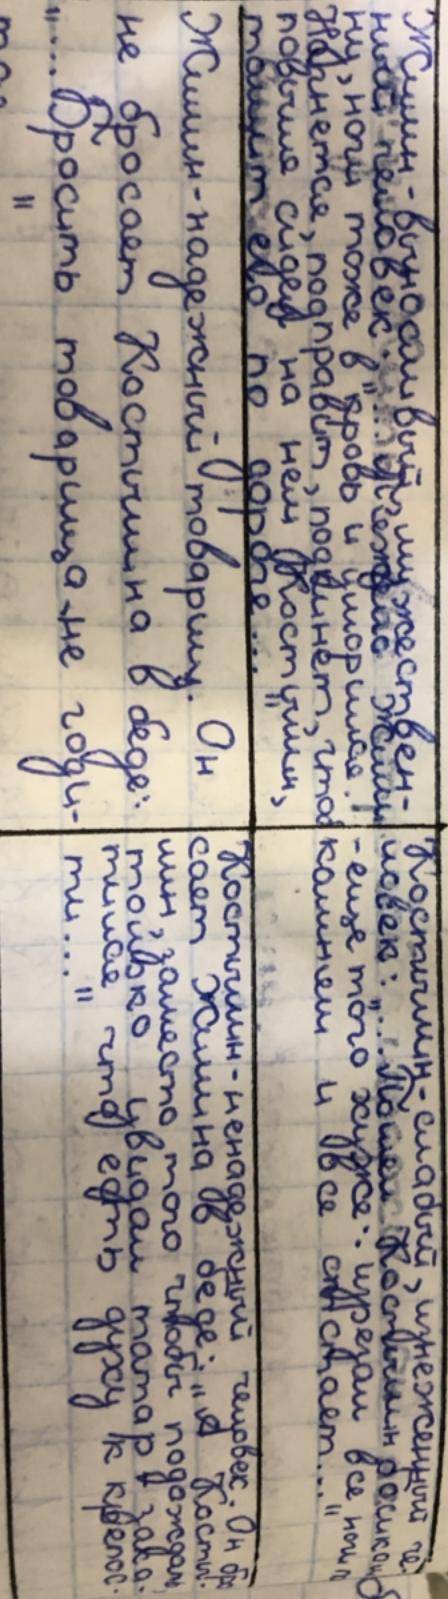 Жилин-выносливый, мужествен-
ный человек: "... Тяжело Жили-
ну, ноги тоже в крови и уморился.
Нагнется, подправит, подкинет, чтоб
повыше сидел на нем Костылин,
тащит его по дороге..."
Костылин-слабый, изнеженный че-
ловек: "... Пошел Костылин босиком
-еще того хуже: изрезал все ноги
камнем и все отстает..."
Жилин-надежный товарищ. Он
не бросает Костылина в беде:
"... Бросить товарища не годи-
тся
"
Костылин-ненадежный человек. Он бро
сает Жилина в беде: "А Косты-
лин, заместо того чтобы подождать,
только увидал татар, зака-
тился что есть духу к крепос-
ти..."